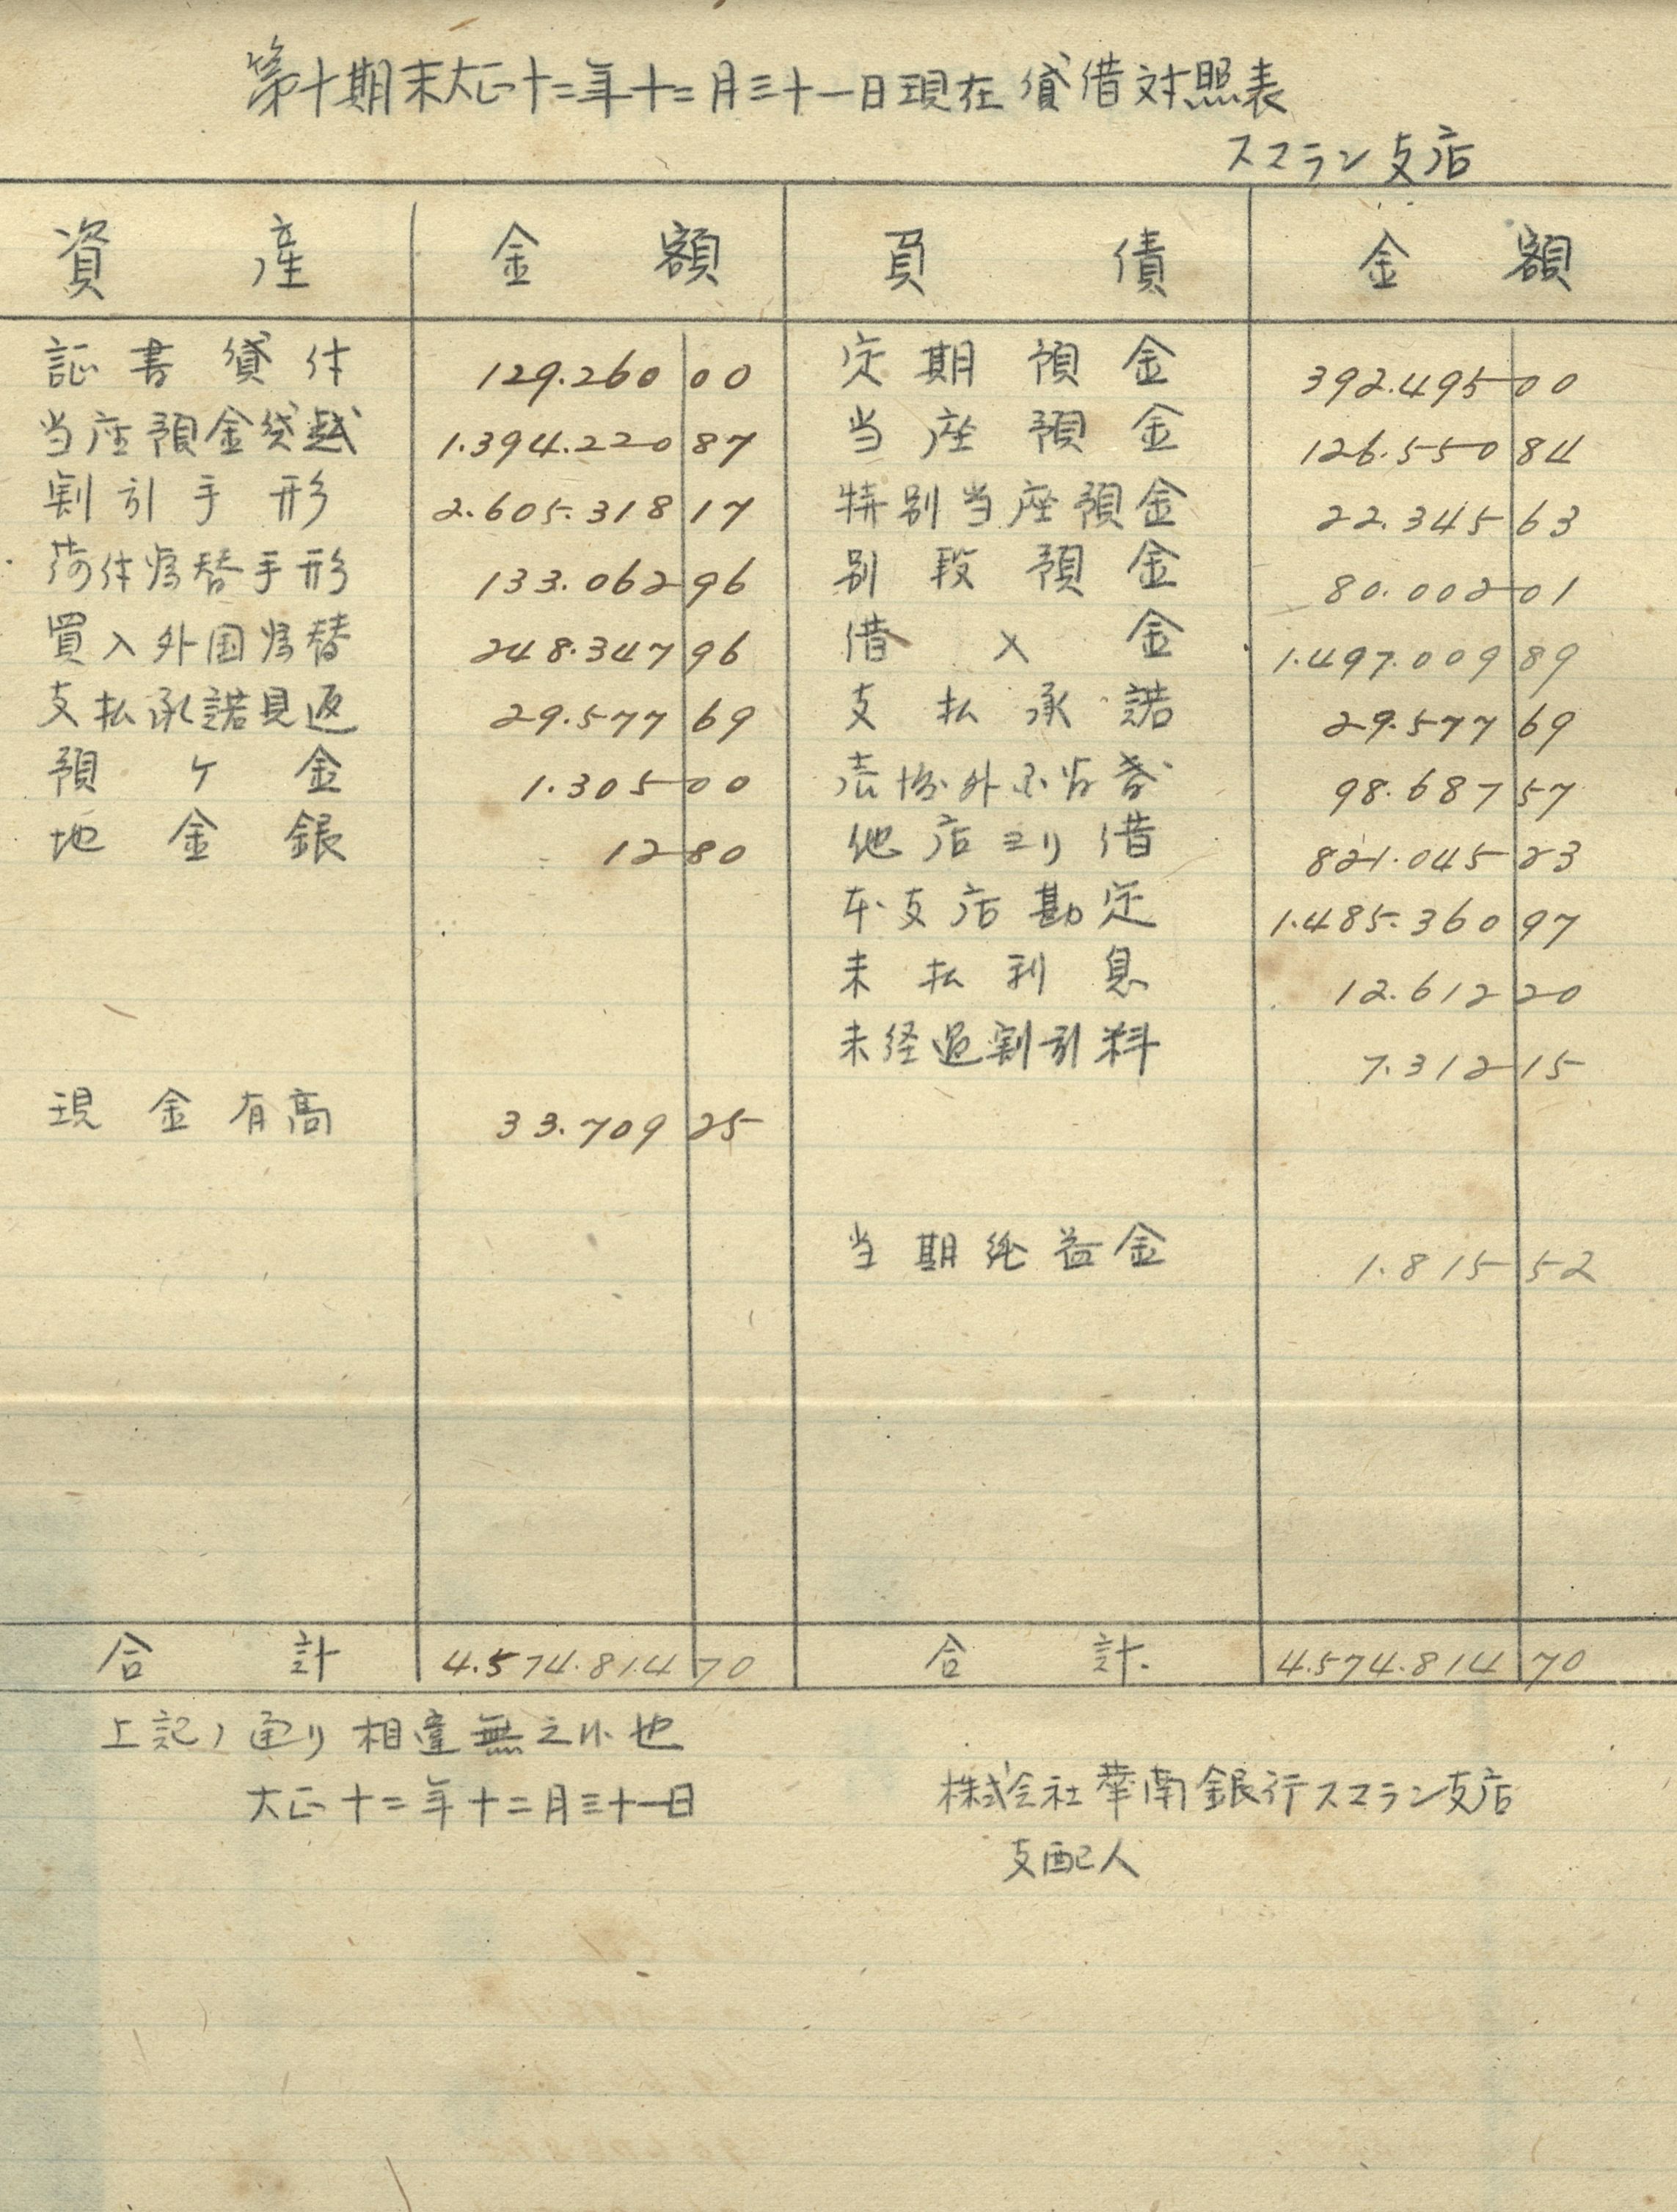 第十期末大正十二年十二月三十一日現在貸借対照表
スマラン支店
資産 金額 負債 金額
証書貸付 129.260 00 定期預金 392.495 00
当座預金貸越 1.394.220 87 当座預金 126.550 84
割引手形 2.605.318 17 特別当座預金 22.345 63
荷付為替手形 133.062 96 別段預金 80.002 01
買入外国為替 248.347 96 借入金 1.497.009 89
支払承諾見返 29.577 69 支払承諾 29.577 69
預ケ金 1.305 00 外国為替 98.687 57
地金銀 12 80 他店ヨリ借 821.045 23
本支店勘定 1.485.360 97
未払利息 12.612 20
未経過割引料 7.312 15
現金有高 33.709 25
当期純益金 1.815 52
合計 4.574.814 70 合計 4.574.814 70
上記ノ通リ相違無之候也
大正十二年十二月三十一日
株式会社華南銀行スマラン支店
支配人